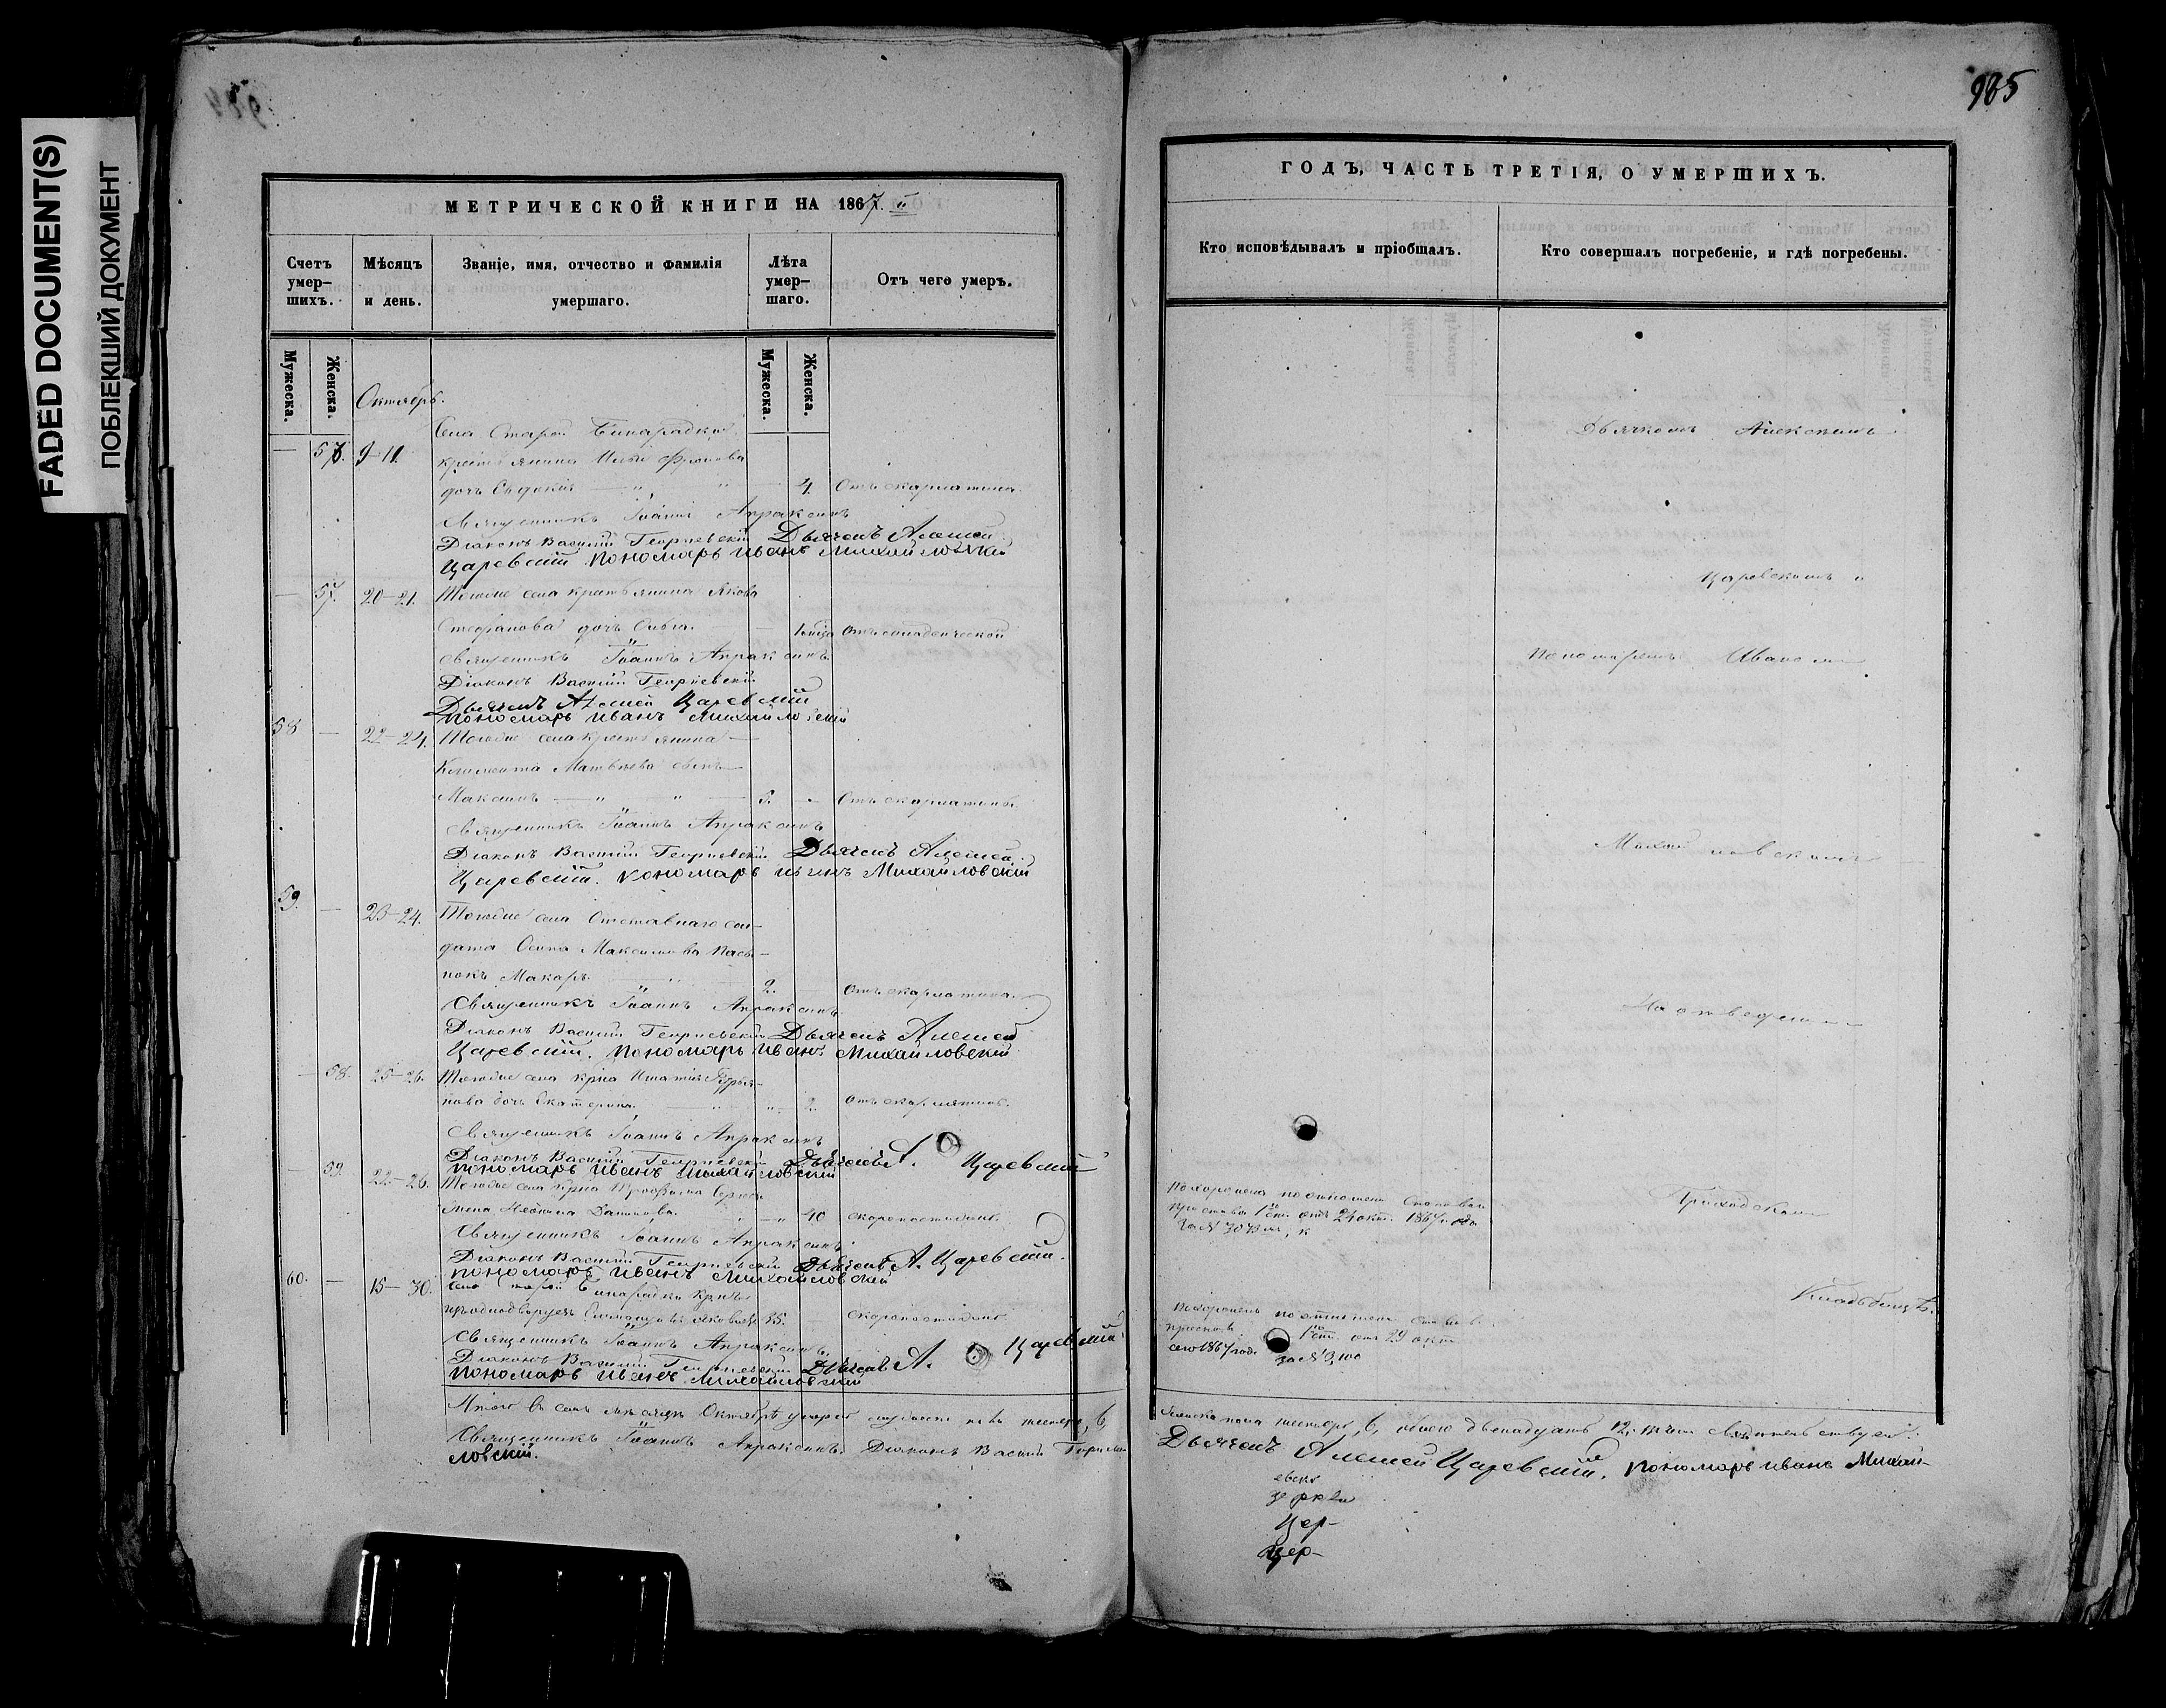 FADED DOCUMENT(S)
ПОБЛЕКШИЙ ДОКУМЕНТ
985
МЕТРИЧЕСКОЙ КНИГИ НА 1867.
Счетъ умер-шихъ.
Мѣсяцъ и день.
Званіе, имя, отчество и фамилія умершаго.
Лѣта умер-шаго.
Отъ чего умеръ.
Мужеска.
Женска.
Мужеска.
Женска.
Октябрь.
Села Старой Бинарадки
56. 9-11. крестьянина Ильи
дочь Евдокія 4. Отъ скарлатины.
Священникъ Іоаннъ Апраксинъ
Діаконъ Василій Георгіевскій Дьячекъ Алексей
Царевскій. Пономарь Иванъ Михайловскій
57. 20-21. Тогоже села крестьянина Якова
Стефанова дочь Ольга. 1 мѣся Отъ младенческой
Священникъ Іоаннъ Апраксинъ
Діаконъ Василій Георгіевскій
Дьячекъ Алексей Царевскій
пономарь Иванъ Михайловскій
58 — 22-24. Тогоже села крестьянина
Климента Матвѣева сынъ
Максимъ 5. Отъ скарлатины.
Священникъ Іоаннъ Апраксинъ
Діаконъ Василій Георгіевскій Дьячекъ Алексей
Царевскій. Пономарь Иванъ Михайловскій
59. — 23-24. Тогоже села Отставнаго сол-
дата Осипа Максимова пасы-
нокъ Макаръ 2. Отъ скарлатины.
Священникъ Іоаннъ Апраксинъ
Діаконъ Василій Георгіевскій Дьячекъ Алексей
Царевскій. Пономарь Иванъ Михайловскій
58. 25-26. Тогоже села крна Игнатія Гурья-
нова дочь Екатерина 2. Отъ скарлатины.
Священникъ Іоаннъ Апраксинъ
Діаконъ Василій Георгіевскій Дьячекъ А. Царевскій
пономарь Иванъ Михайловскій
59. 22-26. Тогоже села крна Трофима
жена 40 скоропостижно.
Священникъ Іоаннъ Апраксинъ
Діаконъ Василій Георгіевскій Дьячекъ А. Царевскій.
пономарь Иванъ Михайловскій
60. — 15-30. Села Старой Бинарадки
55. скоропостижно
Священникъ Іоаннъ Апраксинъ.
Діаконъ Василій Георгіевскій Дьячекъ А. Царевскій
пономарь Иванъ Михайловскій
Итого въ семъ мѣсяцѣ Октябрѣ умерло мужеска пола шестеро, 6,
Священникъ Іоаннъ Апраксинъ. Діаконъ Василій
ловскій.
ГОДЪ, ЧАСТЬ ТРЕТІЯ, О УМЕРШИХЪ.
Кто исповѣдывалъ и пріобщалъ.
Кто совершалъ погребеніе, и гдѣ погребены.
Дьячкомъ Алексеемъ
Царевскимъ и
Пономаремъ Иваномъ
Михайловскимъ
На отведен
Приходском
Похоронена по отношенію становаго
пристава 1го ст. отъ 24 окт. 1867 года
за № 3073
Кладбищѣ.
Похороненъ по отношенію
пристава 1го ст. отъ 29 окт
сего 1867 год. за № 3,100
Женска пола шестеро, 6, обоего двенадцать 12, въ чемъ свидѣтельствуемъ.
Дьячекъ Алексей Царевскій. Пономарь Иванъ Михай-
евскг
Цер-
Цер-